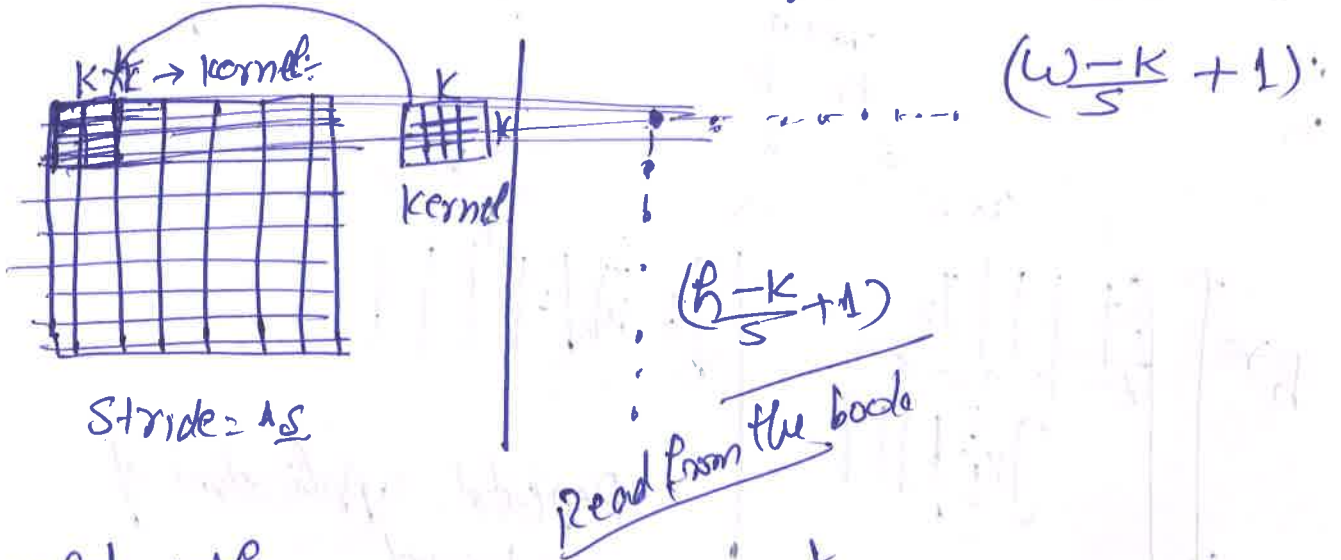 K×K → kernel:
K
K
kernel
(w-k/s + 1)
(h-k/s + 1)
Stride = s
Read from the book